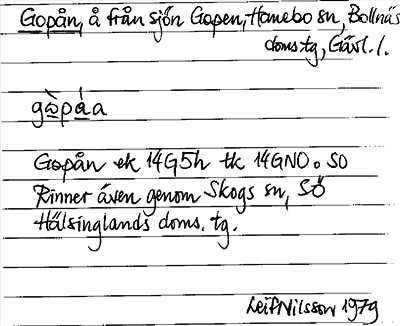 Gopån, å från sjön Gopen, Hanebo sn, Bollnäs
doms.tg, Gävl. l.
gɷ̀páa
Gopån ek 14G5h tk 14GNO o SO
Rinner även genom Skogs sn, SÖ
Hälsinglands doms. tg.
Leif Nilsson 1979